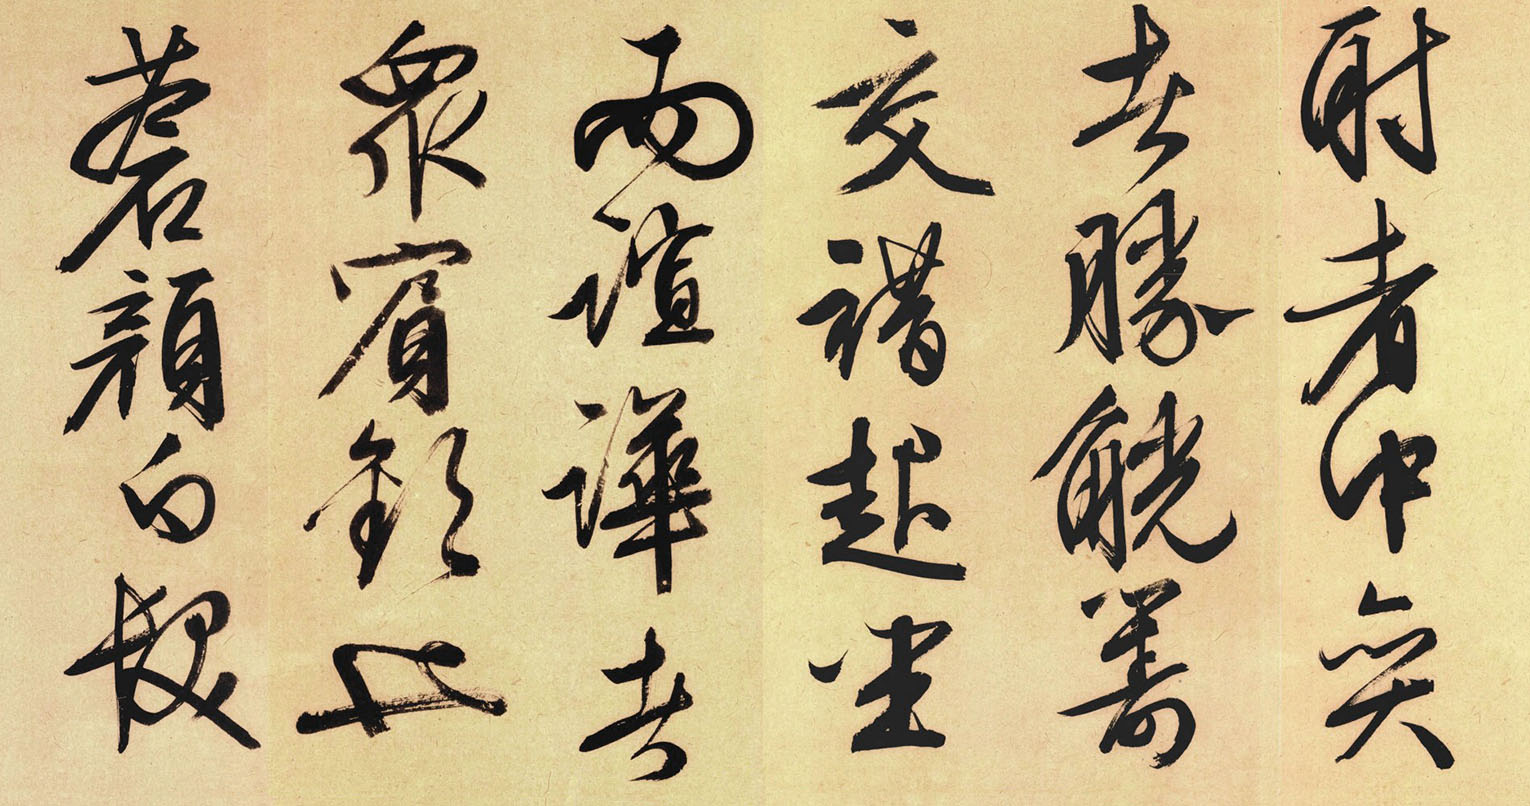 射者中奕
者勝觥籌
交錯起坐
而諠譁者
衆賓歡也
蒼顏白髮